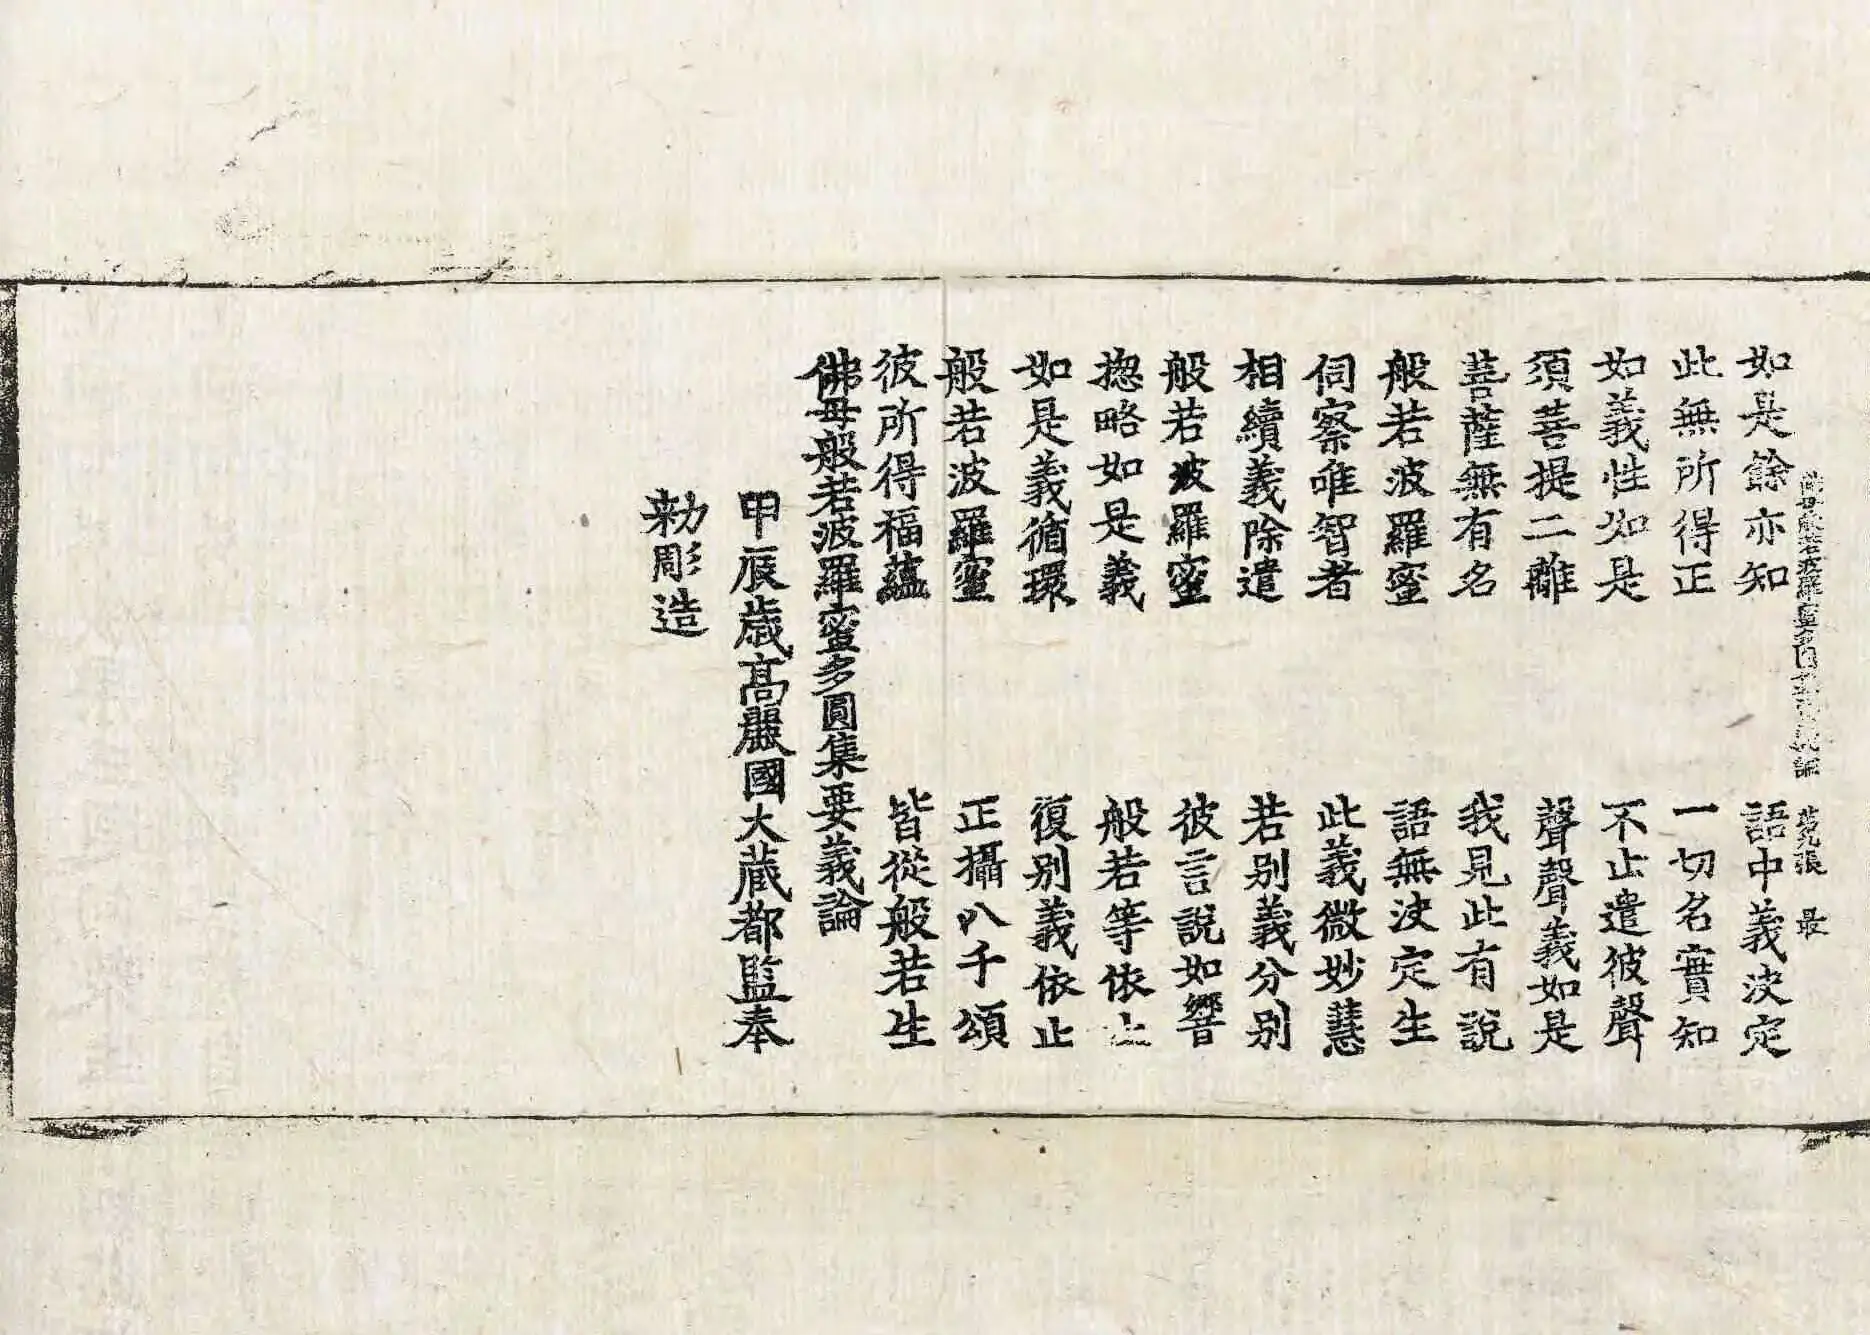 佛母般若波羅蜜多圓集要義論　第九張　最
如是餘亦知　語中義決定
此無所得正　一切名實知
如義性如是　不止遣彼聲
須菩提二離　聲聲義如是
菩薩無有名　我見此有說
般若波羅蜜　語無決定生
伺察唯智者　此義微妙慧
相續義除遣　若別義分別
般若波羅蜜　彼言說如響
揔略如是義　般若等依止
如是義循環　復別義依止
般若波羅蜜　正攝八千頌
彼所得福蘊　皆從般若生
佛母般若波羅蜜多圓集要義論
甲辰歲高麗國大藏都監奉
勑彫造